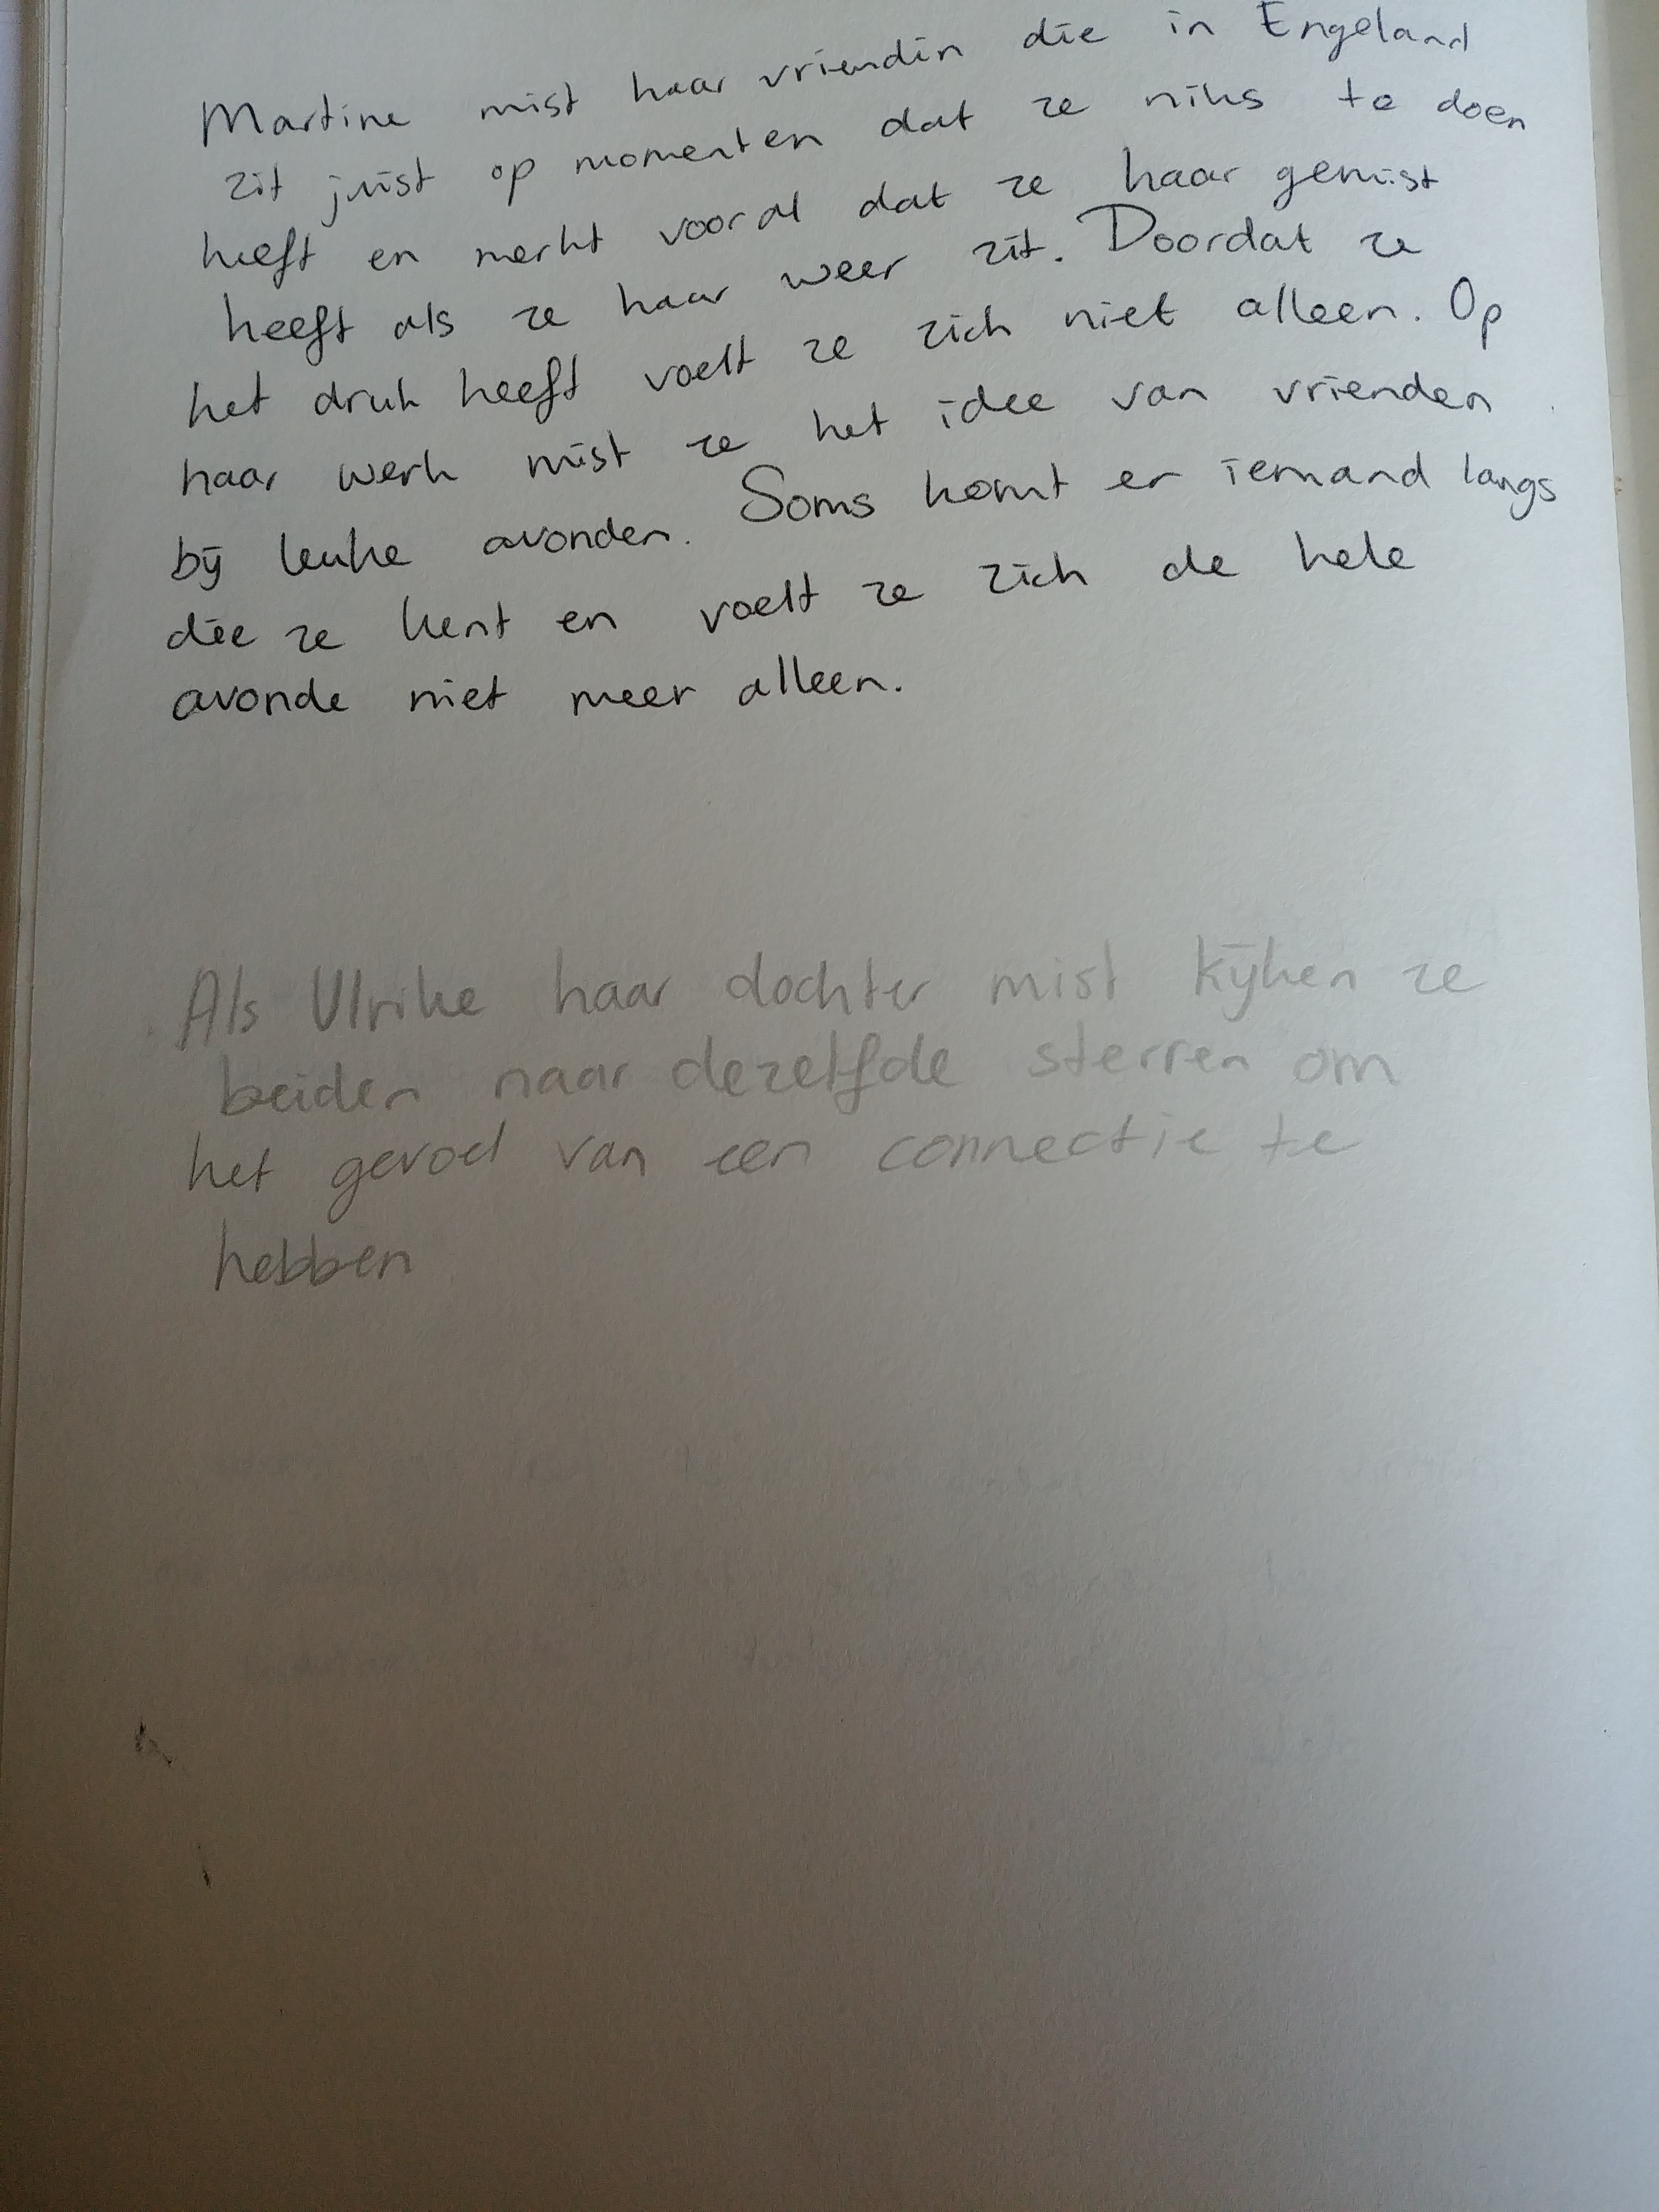 Martine mist haar vriendin die in Engeland
zit juist op momenten dat ze niks te doen
heeft en merkt vooral dat ze haar gemist
heeft als ze haar weer zit. Doordat ze
het druk heeft voelt ze zich niet alleen. Op
haar werk mist ze het idee van vrienden
bij leuke avonden. Soms komt er iemand langs
die ze kent en voelt ze zich de hele
avonde niet meer alleen.
Als Ulrike haar dochter mist kijken ze
beiden naar dezelfde sterren om
het gevoel van een connectie te
hebben